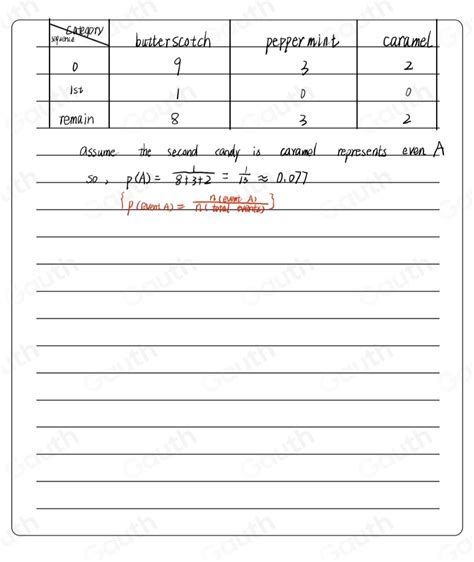 category
sequence butterscotch peppermint caramel
0 9 3 2
1st 1 0 0
remain 8 3 2
assume the second candy is caramel represents even A
so, P(A) = 1/(8+3+2) = 1/13 ≈ 0.077
{P(event A) = n(event A)/n(total events)}